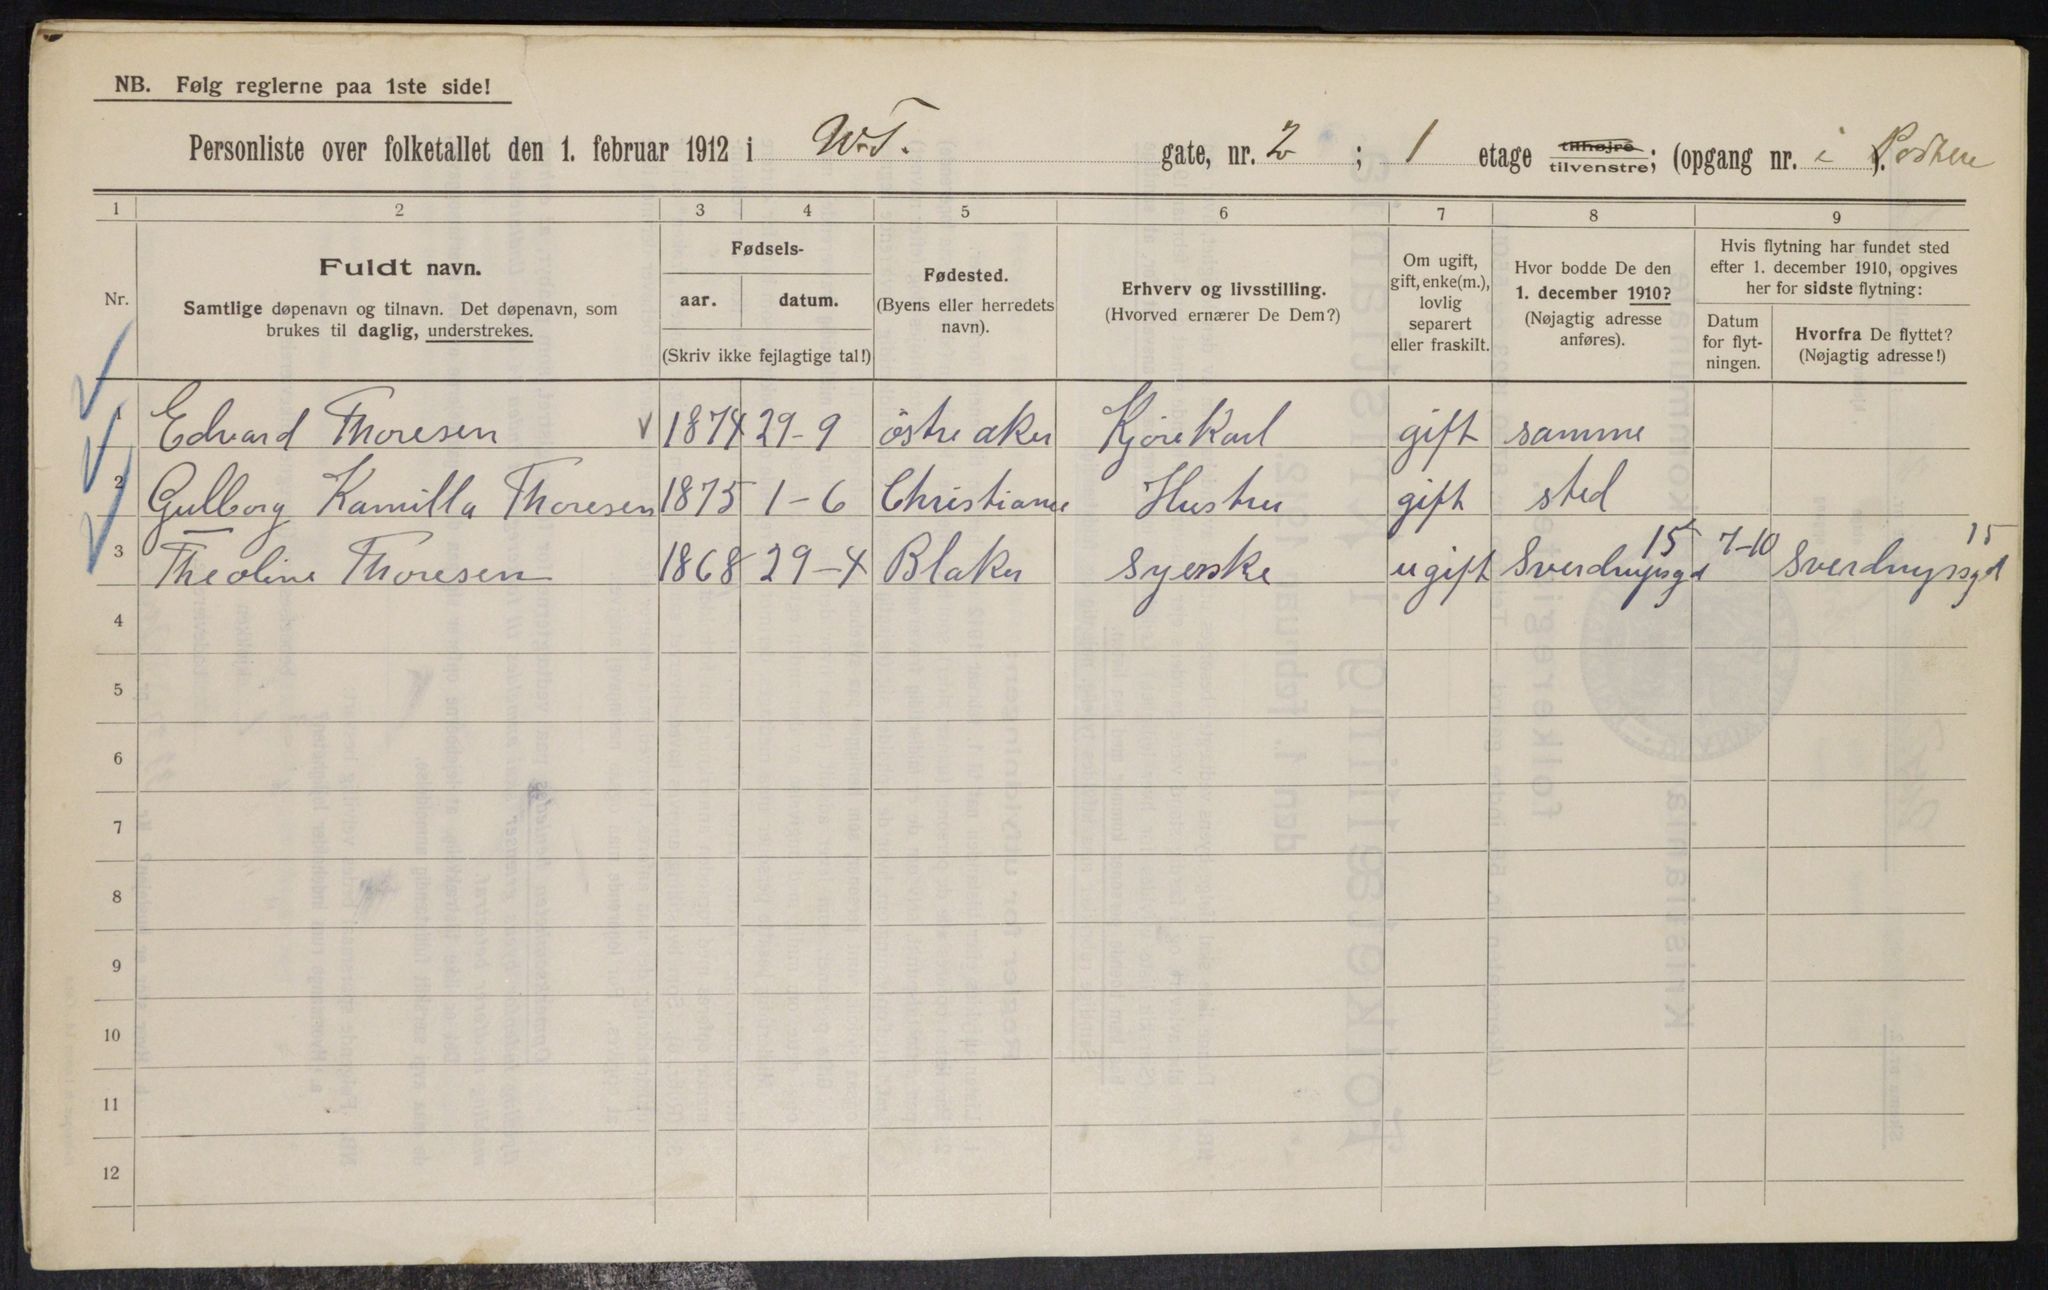 NB. Følg reglerne paa 1ste side!
Personliste over folketallet den 1. februar 1912 i W.T. gate, nr. 2 ; 1 etage tilhøjre tilvenstre; (opgang nr. i ).
1 2 3 4 5 6 7 8 9
Nr.
Fuldt navn.
Samtlige døpenavn og tilnavn. Det døpenavn, som
brukes til daglig, understrekes.
Fødsels-
aar. datum.
(Skriv ikke fejlagtige tal!)
Fødested.
(Byens eller herredets
navn).
Erhverv og livsstilling.
(Hvorved ernærer De Dem?)
Om ugift,
gift, enke(m.),
lovlig
separert
eller fraskilt.
Hvor bodde De den
1. december 1910?
(Nøjagtig adresse
anføres).
Hvis flytning har fundet sted
efter 1. december 1910, opgives
her for sidste flytning:
Datum
for flyt-
ningen.
Hvorfra De flyttet?
(Nøjagtig adresse!)
1 Edvard Thoresen 1874 29-9 östre aker Kjørekarl gift samme
2 Gulborg Kamilla Thoresen 1875 1-6 Christiania Hustru gift sted
3 Theoline Thoresen 1868 29-4 Blaker Syerske ugift Sverdrupsgd 15 7-10 Sverdrupsgd 15
4
5
6
7
8
9
10
11
12